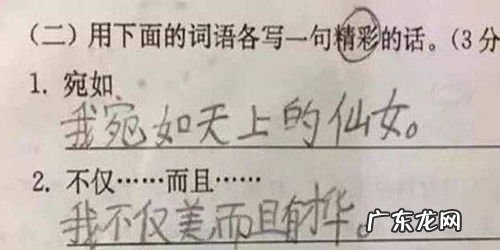 （二）用下面的词语各写一句精彩的话。(3分
1. 宛如
我宛如天上的仙女。
2. 不仅……而且……
我不仅美而且有才华。
广东龙网